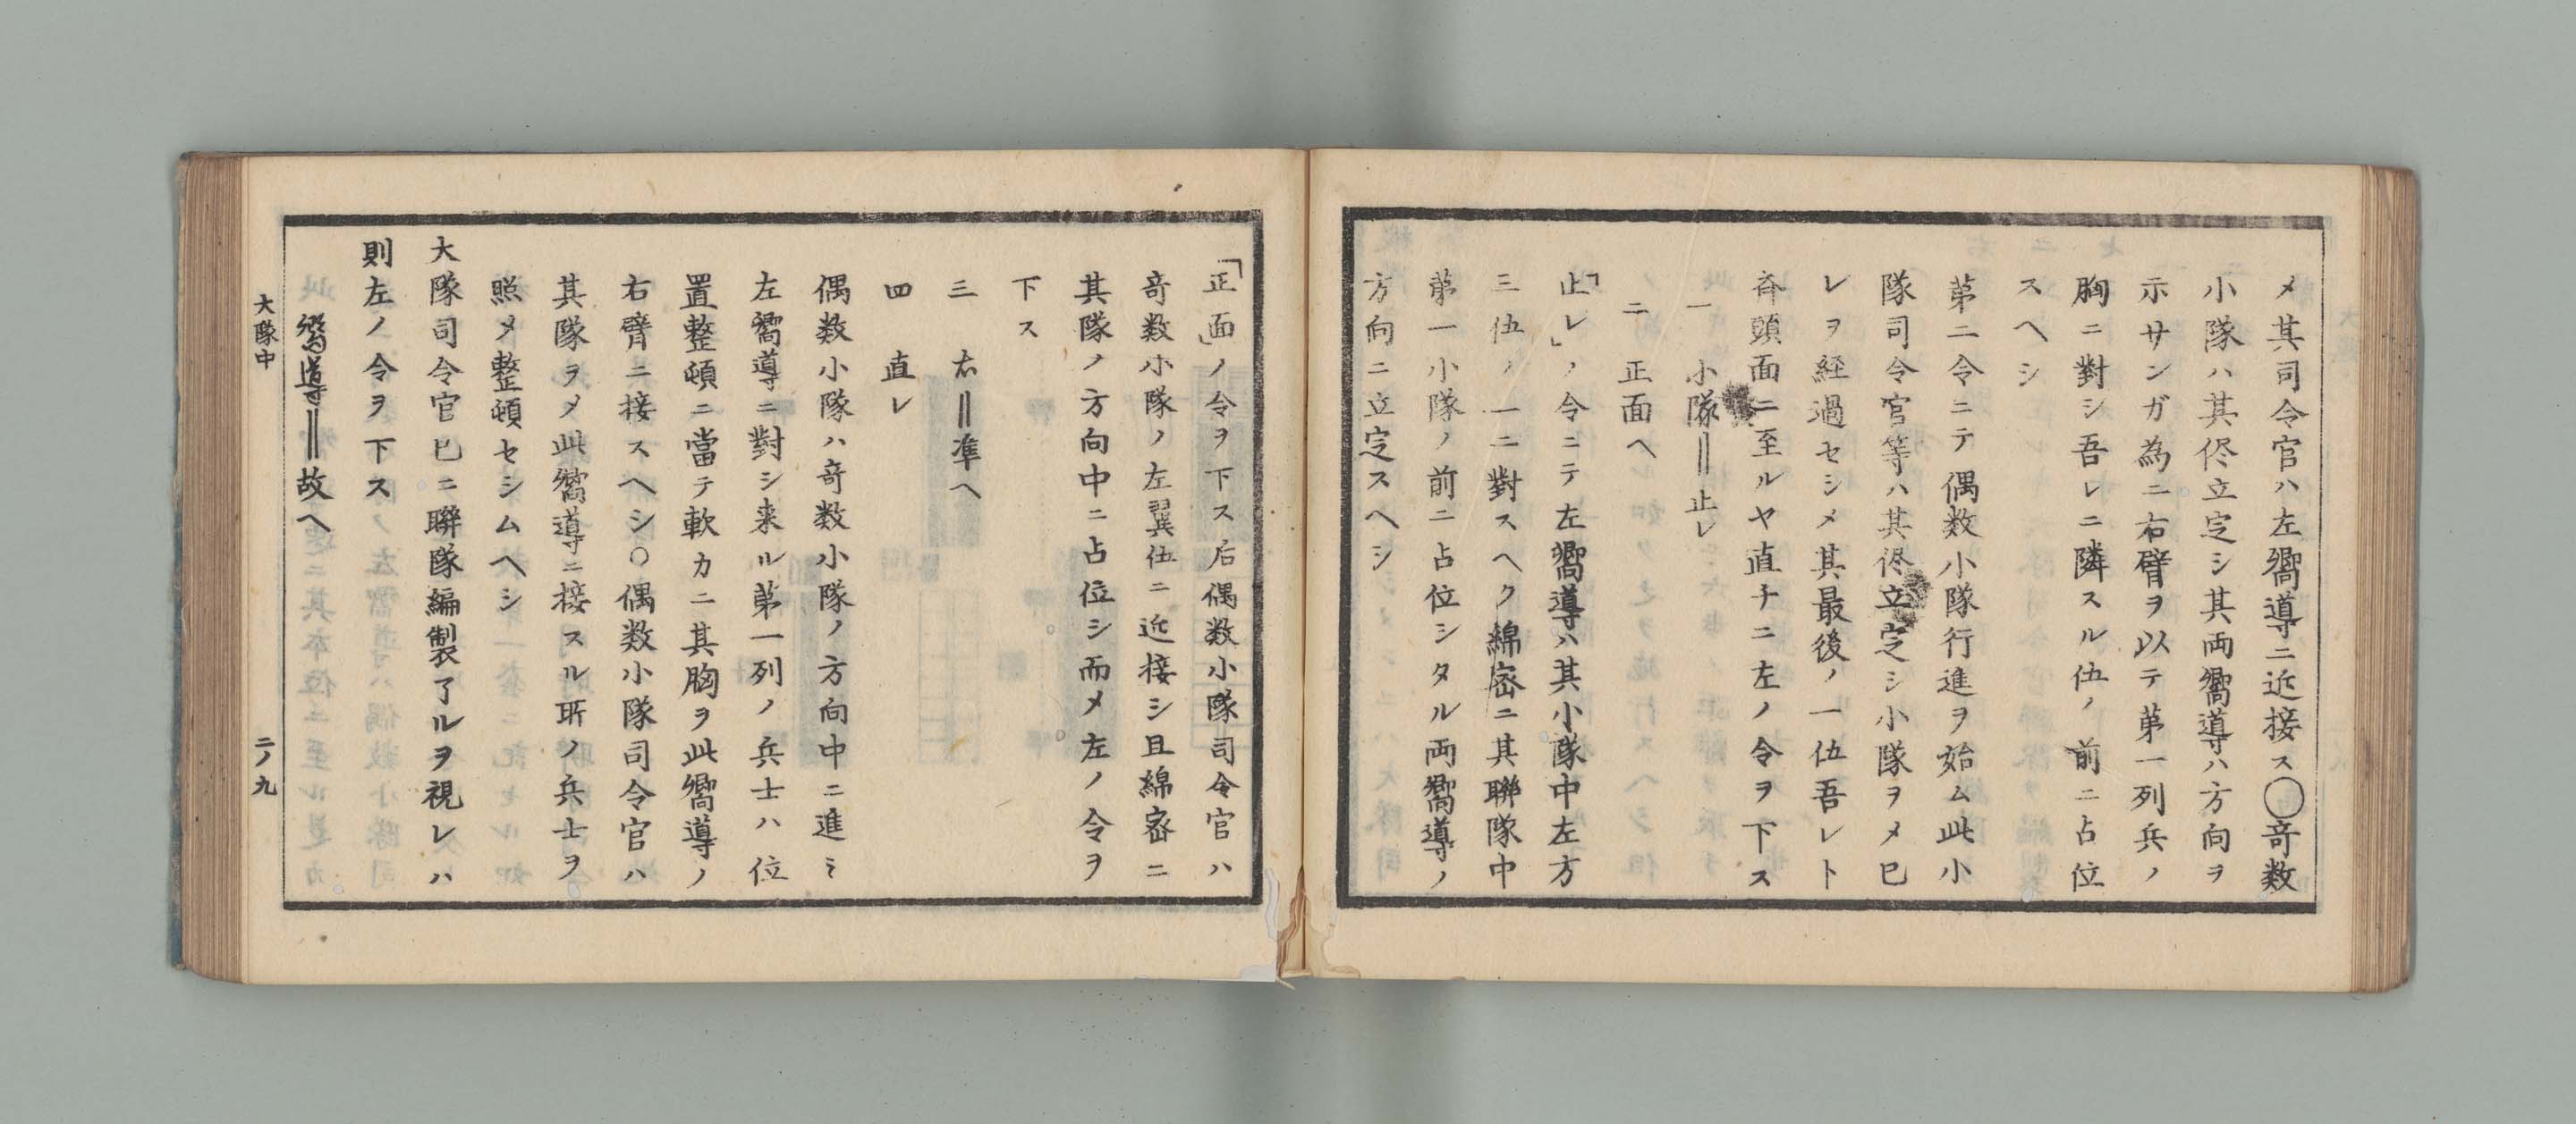 メ其司令官ハ左嚮導ニ近接ス〇竒数
小隊ハ其侭立定シ其両嚮導ハ方向ヲ
示サンガ為ニ右臂ヲ以テ第一列兵ノ
胸ニ對シ吾レニ隣スル伍ノ前ニ占位
スヘシ
第二令ニテ偶数小隊行進ヲ始ム此小
隊司令官等ハ其侭立定シ小隊ヲメ已
レヲ経過セシメ其最後ノ一伍吾レト
斉頭面ニ至ルヤ直チニ左ノ令ヲ下ス
一 小隊‖止レ
二 正面へ
「止レ」ノ令ニテ左嚮導ハ其小隊中左方
三伍ノ一ニ對スヘク綿密ニ其聯隊中
第一小隊ノ前ニ占位シタル両嚮導ノ
方向ニ立定スヘシ
「正面」ノ令ヲ下ス后偶数小隊司令官ハ
竒数小隊ノ左翼伍ニ近接シ且綿密ニ
其隊ノ方向中ニ占位シ而メ左ノ令ヲ
下ス
三 右‖準へ
四 直レ
偶数小隊ハ竒数小隊ノ方向中ニ進ミ
左嚮導ニ對シ来ル第一列ノ兵士ハ位
置整頓ニ當テ軟カニ其胸ヲ此嚮導ノ
右臂ニ接スヘシ〇偶数小隊司令官ハ
其隊ヲメ此嚮導ニ接スル所ノ兵士ヲ
照メ整頓セシムヘシ
大隊司令官已ニ聯隊編製了ルヲ視レハ
則左ノ令ヲ下ス
嚮導‖故へ
大隊中 二ノ九